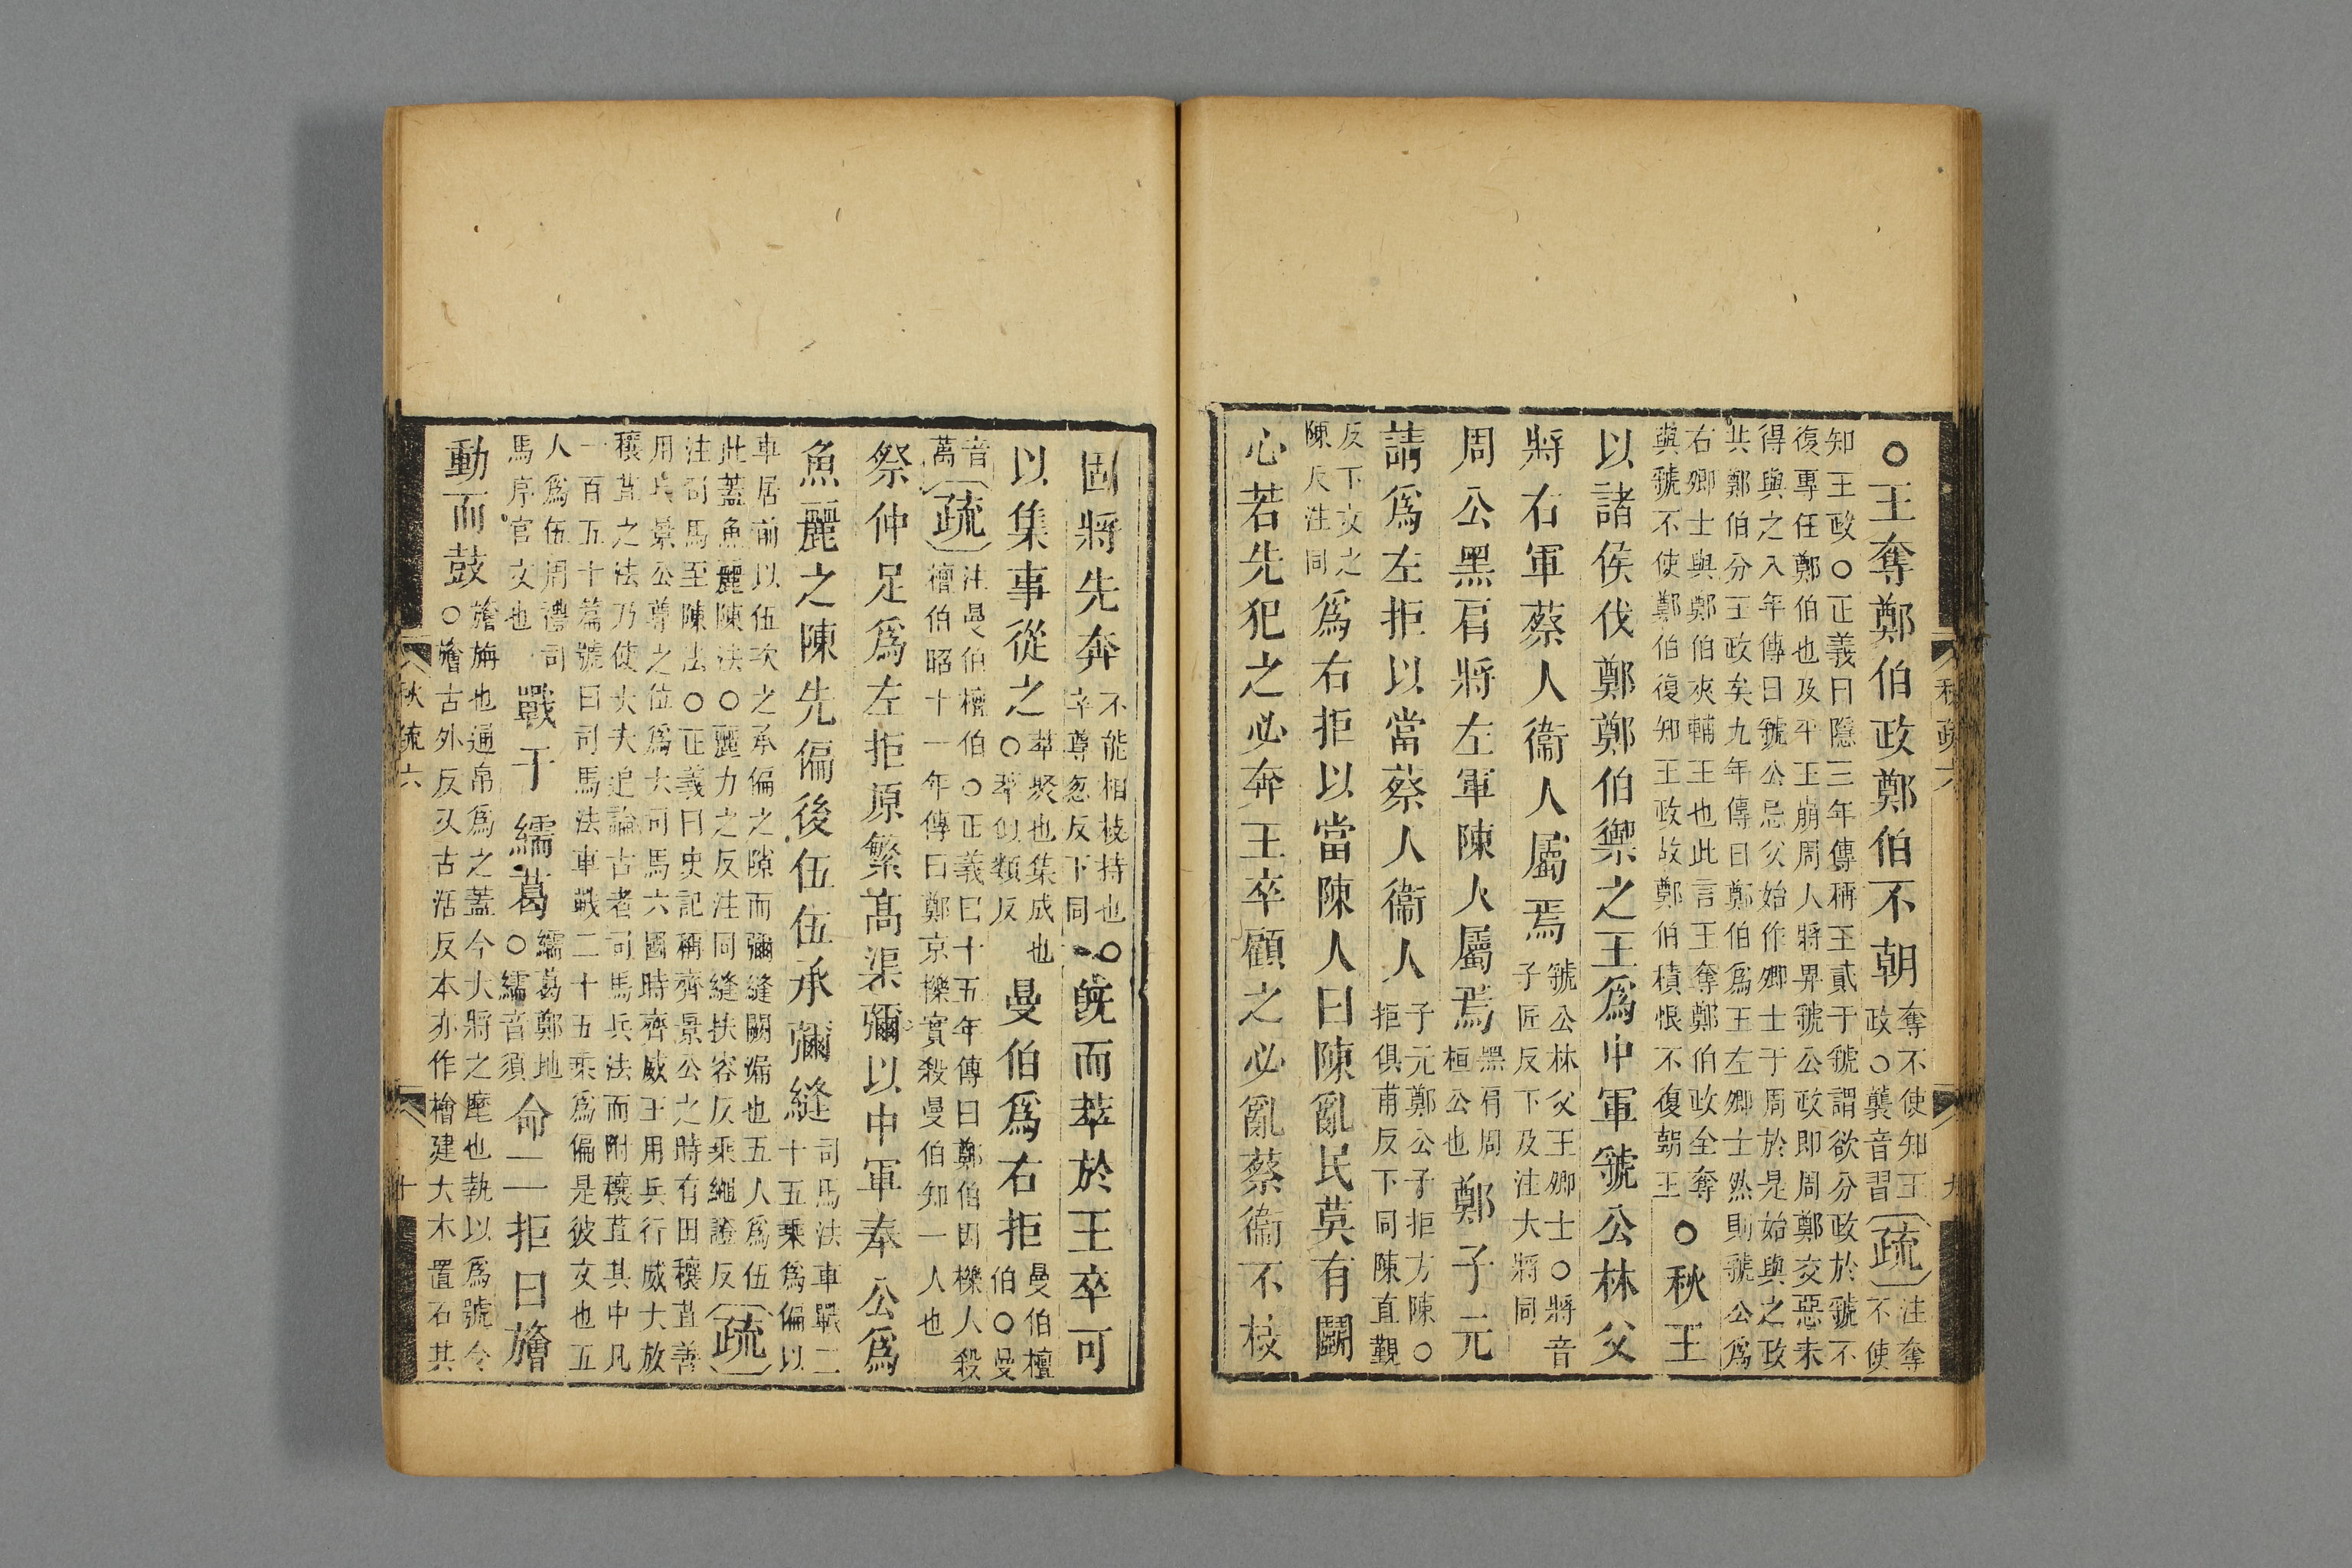 ○王奪鄭伯政鄭伯不朝奪不使知王政○襲音習疏注奪不使
知王政○正義曰隱三年傳稱王貳于虢謂欲分政於虢不
復專任鄭伯也及平王崩周人將畀虢公政即周鄭交惡未
得與之入年傳曰虢公忌父始作卿士于周於是始與之政
共鄭伯分王政矣九年傳曰鄭伯爲王左卿士然則虢公爲
右卿士與鄭伯夾輔王也此言王奪鄭伯政全奪
與虢不使鄭伯復知王政故鄭伯積恨不復朝王○秋王
以諸侯伐鄭鄭伯禦之王爲中軍虢公林父
將右軍蔡人衞人屬焉虢公林父王卿士○將音子匠反下及注大將同
周公黑肩將左軍陳人屬焉黑肩周桓公也鄭子元
請爲左拒以當蔡人衞人子元鄭公子拒方陳○拒俱甫反下同陳直覲
反下文之陳反注同爲右拒以當陳人曰陳亂民莫有鬭
心若先犯之必奔王卒顧之必亂蔡衞不枝
固將先奔不能相枝持也○卒尊忽反下同既而萃於王卒可
以集事從之萃聚也集成也○萃似類反曼伯爲右拒曼伯檀伯○曼
音萬疏注曼伯檀伯○正義曰十五年傳曰鄭伯因櫟人殺檀伯昭十一年傳曰鄭京櫟實殺曼伯知一人也
祭仲足爲左拒原繁高渠彌以中軍奉公爲
魚麗之陳先偏後伍伍承彌縫司馬法車戰二十五乘爲偏以
車居前以伍次之承偏之隙而彌縫闕漏也五人爲伍
此蓋魚麗陳法○麗力之反注同縫扶容反乘繩證反疏
注司馬至陳法○正義曰史記稱齊景公之時有田穰苴善
用兵景公尊之位爲大司馬六國時齊威王用兵行威大放
穰苴之法乃使大夫追論古者司馬兵法而附穰苴其中凡
一百五十篇號曰司馬法車戰二十五乘爲偏是彼文也五
人爲伍周禮司馬序官文也戰于繻葛繻葛鄭地○繻音須命二拒曰旝
動而鼓旝旃也通帛爲之蓋今大將之麾也執以爲號令○旝古外反又古活反本亦作檜建大木置石其
秋疏六
九
秋疏六
十